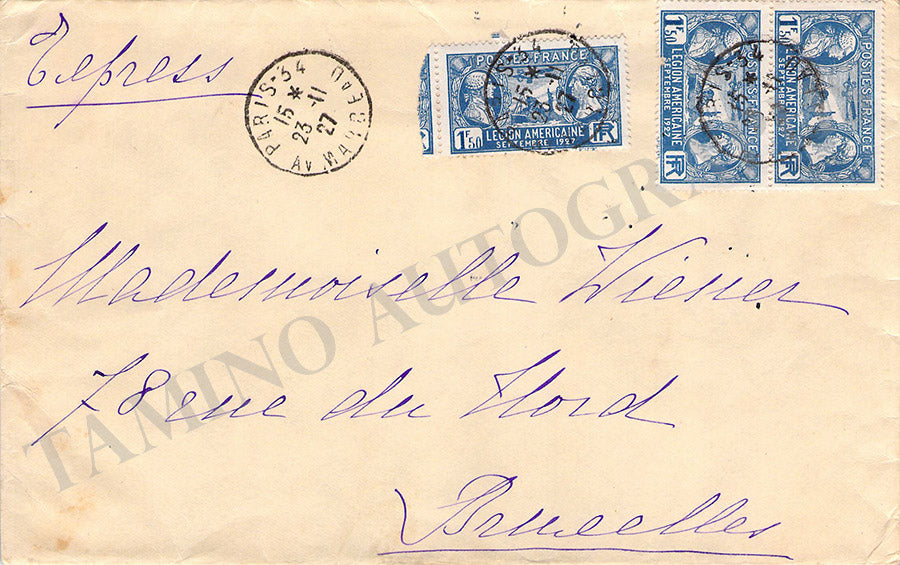 Express
PARIS-34
15 *
23-11
27
AV. MARCEAU
POSTES FRANCE
1F50
LEGION AMERICAINE
SEPTEMBRE 1927
RF
1F50
LEGION AMERICAINE
SEPTEMBRE 1927
POSTES FRANCE
RF
1F50
LEGION AMERICAINE
SEPTEMBRE 1927
POSTES FRANCE
RF
Mademoiselle Wiener
78 rue du Nord
Bruxelles
TAMINO AUTOGRA